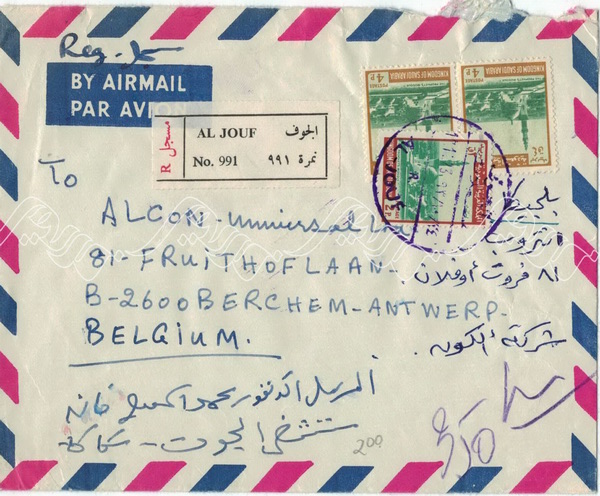 Reg.
BY AIRMAIL
PAR AVION
R مسجل
AL JOUF الجوف
No. 991 نمرة ٩٩١
POSTAGE 4 P
KINGDOM OF SAUDI ARABIA
POSTAGE 4 P
KINGDOM OF SAUDI ARABIA
AL JOUF
R
To
ALCON-Universal
81-FRUITHOFLAAN-
B-2600 BERCHEM-ANTWERP-
BELGIUM.
بلجيكا
انتروب
٨١ فروت أوفلان
شركة الكون
المرسل الدكتور محمد
مستشفى الجوف - سكاكا
200